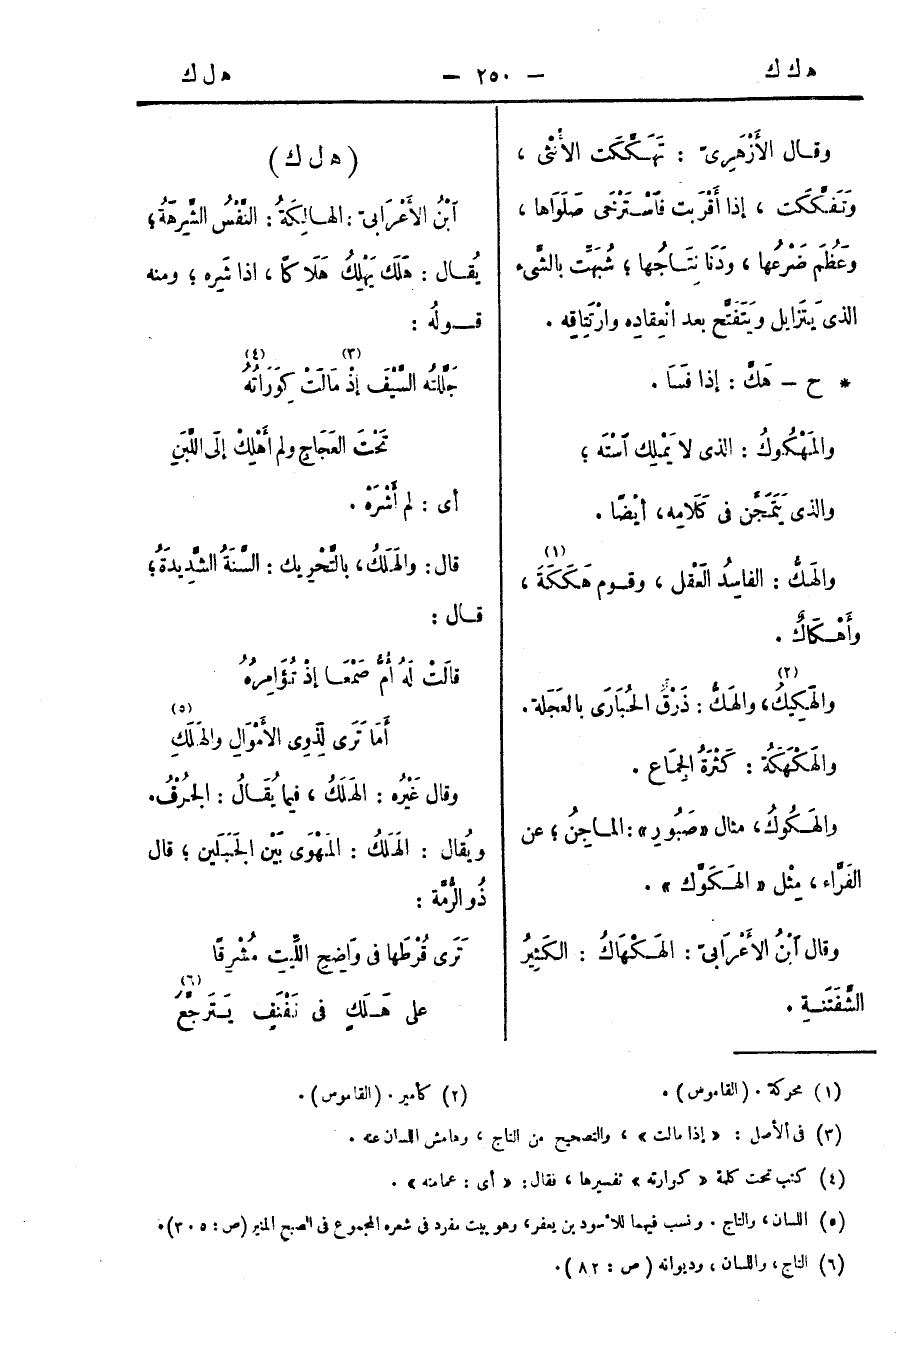 ه ك ك — ٢٥٠ — ه ل ك
وقال الأَزْهَرِىّ : تَهَكَّكَت الأُنْثَى ،
وَتَفَكَّكَت ، إذا أَقْرَبَت فاسْتَرْخَى صَلَوَاها ،
وعَظُمَ ضَرْعُها ، ودَنَا نِتَاجُها ؛ شُبِّهَت بالشَّىء
الذى يَتَزايل ويَتَفَتَّح بعد انْعِقاده وارْتِتاقِه .
* ح – هَكَّ : إذا فَسَا .
والمَهْكُوكُ : الذى لا يَمْلِك آسْتَه ؛
والذى يَتَمَجَّن فى كَلَامِه، أيْضًا .
والهَكُّ : الفاسِدُ العَقْل ، وقوم هَكَكَةَ (١) ،
وأَهْكَاكٌ .
والهَكِيكُ (٢)، والهَكُّ : ذَرْقُ الحُبَارَى بالعَجَلة.
والهَكْهَكَةُ : كَثْرَةُ الجِمَاع .
والهَكُوكُ، مثال «صَبُورٍ» : الماجِنُ ؛ عن
الفَرَّاء ، مِثْل « الهَكَوَّك » .
وقال آبْنُ الأَعْرَابىّ : الهَكْهَاكُ : الكَثِيرُ
الشَّفْتَنَةِ .
(ه ل ك)
آبْنُ الأَعْرابىّ : الهالِكَةُ : النَّفْسُ الشَّرِهَةُ ؛
يُقال : هَلَكَ يَهْلِكُ هَلَاكًا ، اذا شَرِه ؛ ومنه
قولُه :
جَلَّلتُه السَّيْفَ إذْ (٣) مَالَتْ كِوَرَاتُهُ (٤)
تَحْتَ العَجَاجِ ولم أَهْلِكْ إلَى اللَّبَنِ
أى : لم أَشْرَهْ .
قال : والهَلَكُ، بالتَّحْرِيك : السَّنَةُ الشَّدِيدَةُ ؛
قال :
قالَتْ لَهُ أُمُّ صَمْعَا إذْ تُؤَامِرُهُ
أمَا تَرَى لِذَوِى الأَمْوَالِ والهَلَكِ (٥)
وقال غَيْرُه : الهَلَكُ ، فيما يُقَالُ : الجُرْفُ.
ويُقال : الهَلَكُ : المَهْوَى بَيْن الجَبَلَين ؛ قال
ذُو الرُّمَّة :
تَرَى قُرْطَها فى وَاضِحِ اللِّيتِ مُشْرِفًا
على هَلَكٍ فى نَفْنَفٍ يَتَرَجَّحُ (٦)
(١) محركة . (القاموس) . (٢) كأمير . (القاموس) .
(٣) فى الأصل : « إذا مالت » ، والتصحيح من التاج ، وهامش اللسان عنه .
(٤) كتب تحت كلمة « كوارته » تفسيرها ، فقال : « أى : عمامته » .
(٥) اللسان، والتاج . ونسب فيهما للأسود بن يعفر، وهو بيت مفرد فى شعره المجموع فى الصبح المنير (ص : ٣٠٥).
(٦) التاج، واللسان ، وديوانه ( ص : ٨٢ ).